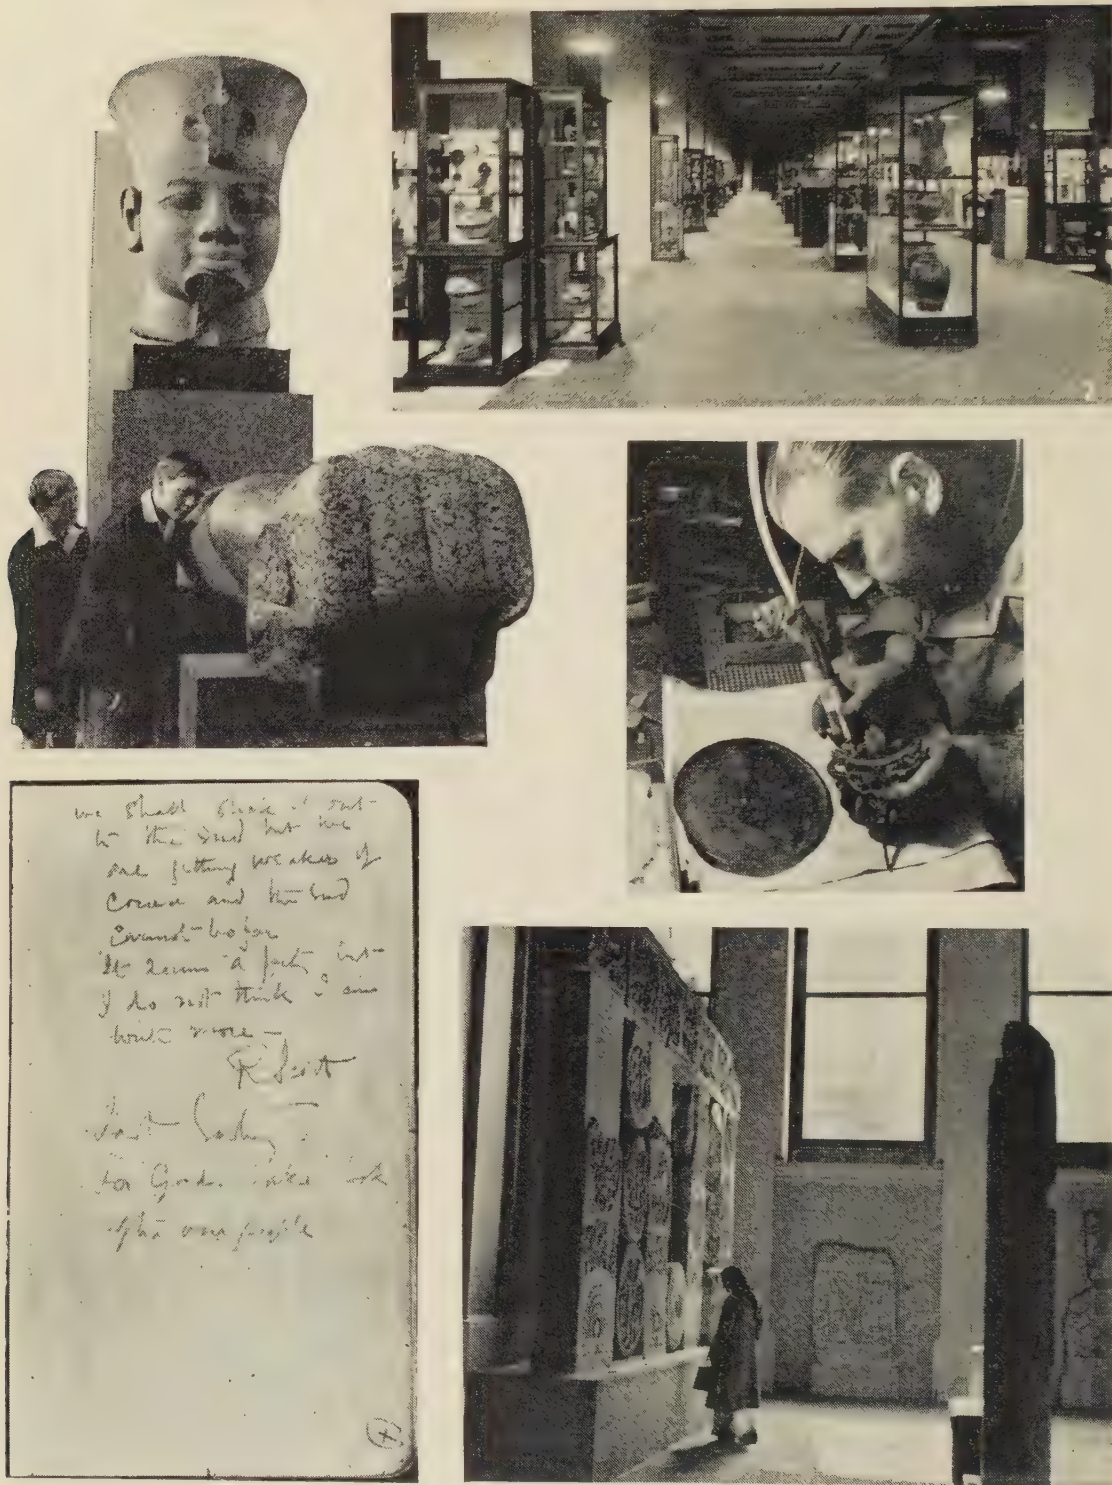 we shall stick it out
to the end but we
are getting weaker of
course and the end
cannot be far
It seems a pity but
I do not think I can
write more —
R Scott
Last Entry
For Gods sake look
after our people